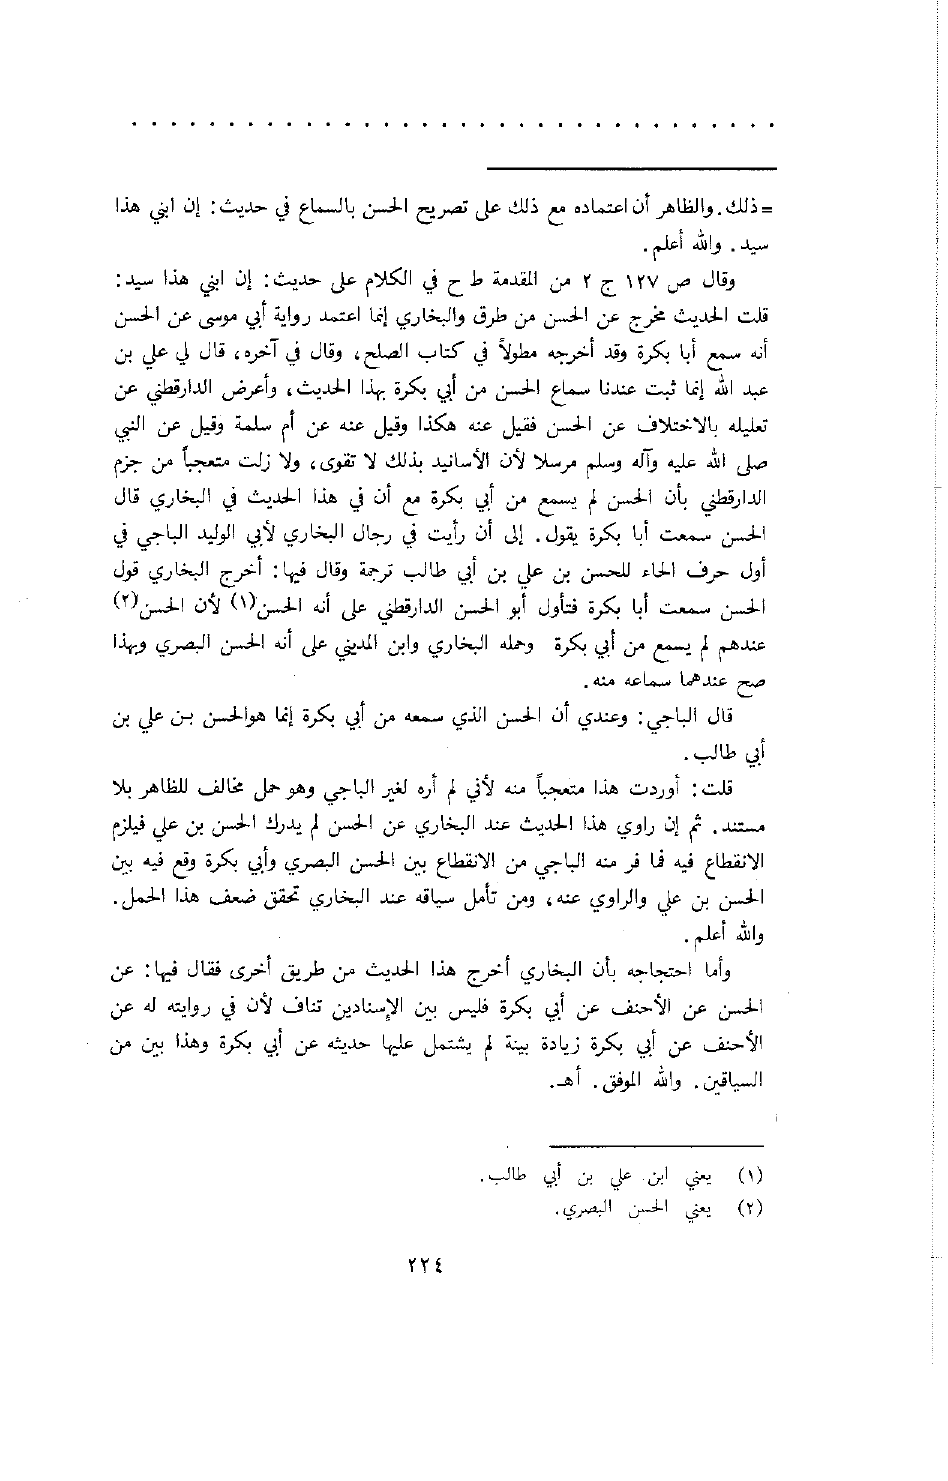 . . . . . . . . . . . . . . . . . . . . . . . . . . . . . . . . . .
= ذلك. والظاهر أن اعتماده مع ذلك على تصريح الحسن بالسماع في حديث: إن ابني هذا
سيد. والله أعلم.
وقال ص ١٢٧ ج ٢ من المقدمة ط ح في الكلام على حديث: إن ابني هذا سيد:
قلت الحديث مخرج عن الحسن من طرق والبخاري إنما اعتمد رواية أبي موسى عن الحسن
أنه سمع أبا بكرة وقد أخرجه مطولاً في كتاب الصلح، وقال في آخره، قال لي علي بن
عبد الله إنما ثبت عندنا سماع الحسن من أبي بكرة بهذا الحديث، وأعرض الدارقطني عن
تعليله بالاختلاف عن الحسن فقيل عنه هكذا وقيل عنه عن أم سلمة وقيل عن النبي
صلى الله عليه وآله وسلم مرسلا لأن الأسانيد بذلك لا تقوى، ولا زلت متعجباً من جزم
الدارقطني بأن الحسن لم يسمع من أبي بكرة مع أن في هذا الحديث في البخاري قال
الحسن سمعت أبا بكرة يقول. إلى أن رأيت في رجال البخاري لأبي الوليد الباجي في
أول حرف الحاء للحسن بن علي بن أبي طالب ترجمة وقال فيها: أخرج البخاري قول
الحسن سمعت أبا بكرة فتأول أبو الحسن الدارقطني على أنه الحسن(١) لأن الحسن(٢)
عندهم لم يسمع من أبي بكرة وحمله البخاري وابن المديني على أنه الحسن البصري وبهذا
صح عندهما سماعه منه.
قال الباجي: وعندي أن الحسن الذي سمعه من أبي بكرة إنما هوالحسن بن علي بن
أبي طالب.
قلت: أوردت هذا متعجباً منه لأني لم أره لغير الباجي وهو حمل مخالف للظاهر بلا
مستند. ثم إن راوي هذا الحديث عند البخاري عن الحسن لم يدرك الحسن بن علي فيلزم
الانقطاع فيه فما فر منه الباجي من الانقطاع بين الحسن البصري وأبي بكرة وقع فيه بين
الحسن بن علي والراوي عنه، ومن تأمل سياقه عند البخاري تحقق ضعف هذا الحمل.
والله أعلم.
وأما احتجاجه بأن البخاري أخرج هذا الحديث من طريق أخرى فقال فيها: عن
الحسن عن الأحنف عن أبي بكرة فليس بين الإسنادين تناف لأن في روايته له عن
الأحنف عن أبي بكرة زيادة بينة لم يشتمل عليها حديثه عن أبي بكرة وهذا بين من
السياقين. والله الموفق. أهـ.
(١) يعني ابن علي بن أبي طالب.
(٢) يعني الحسن البصري.
٢٢٤